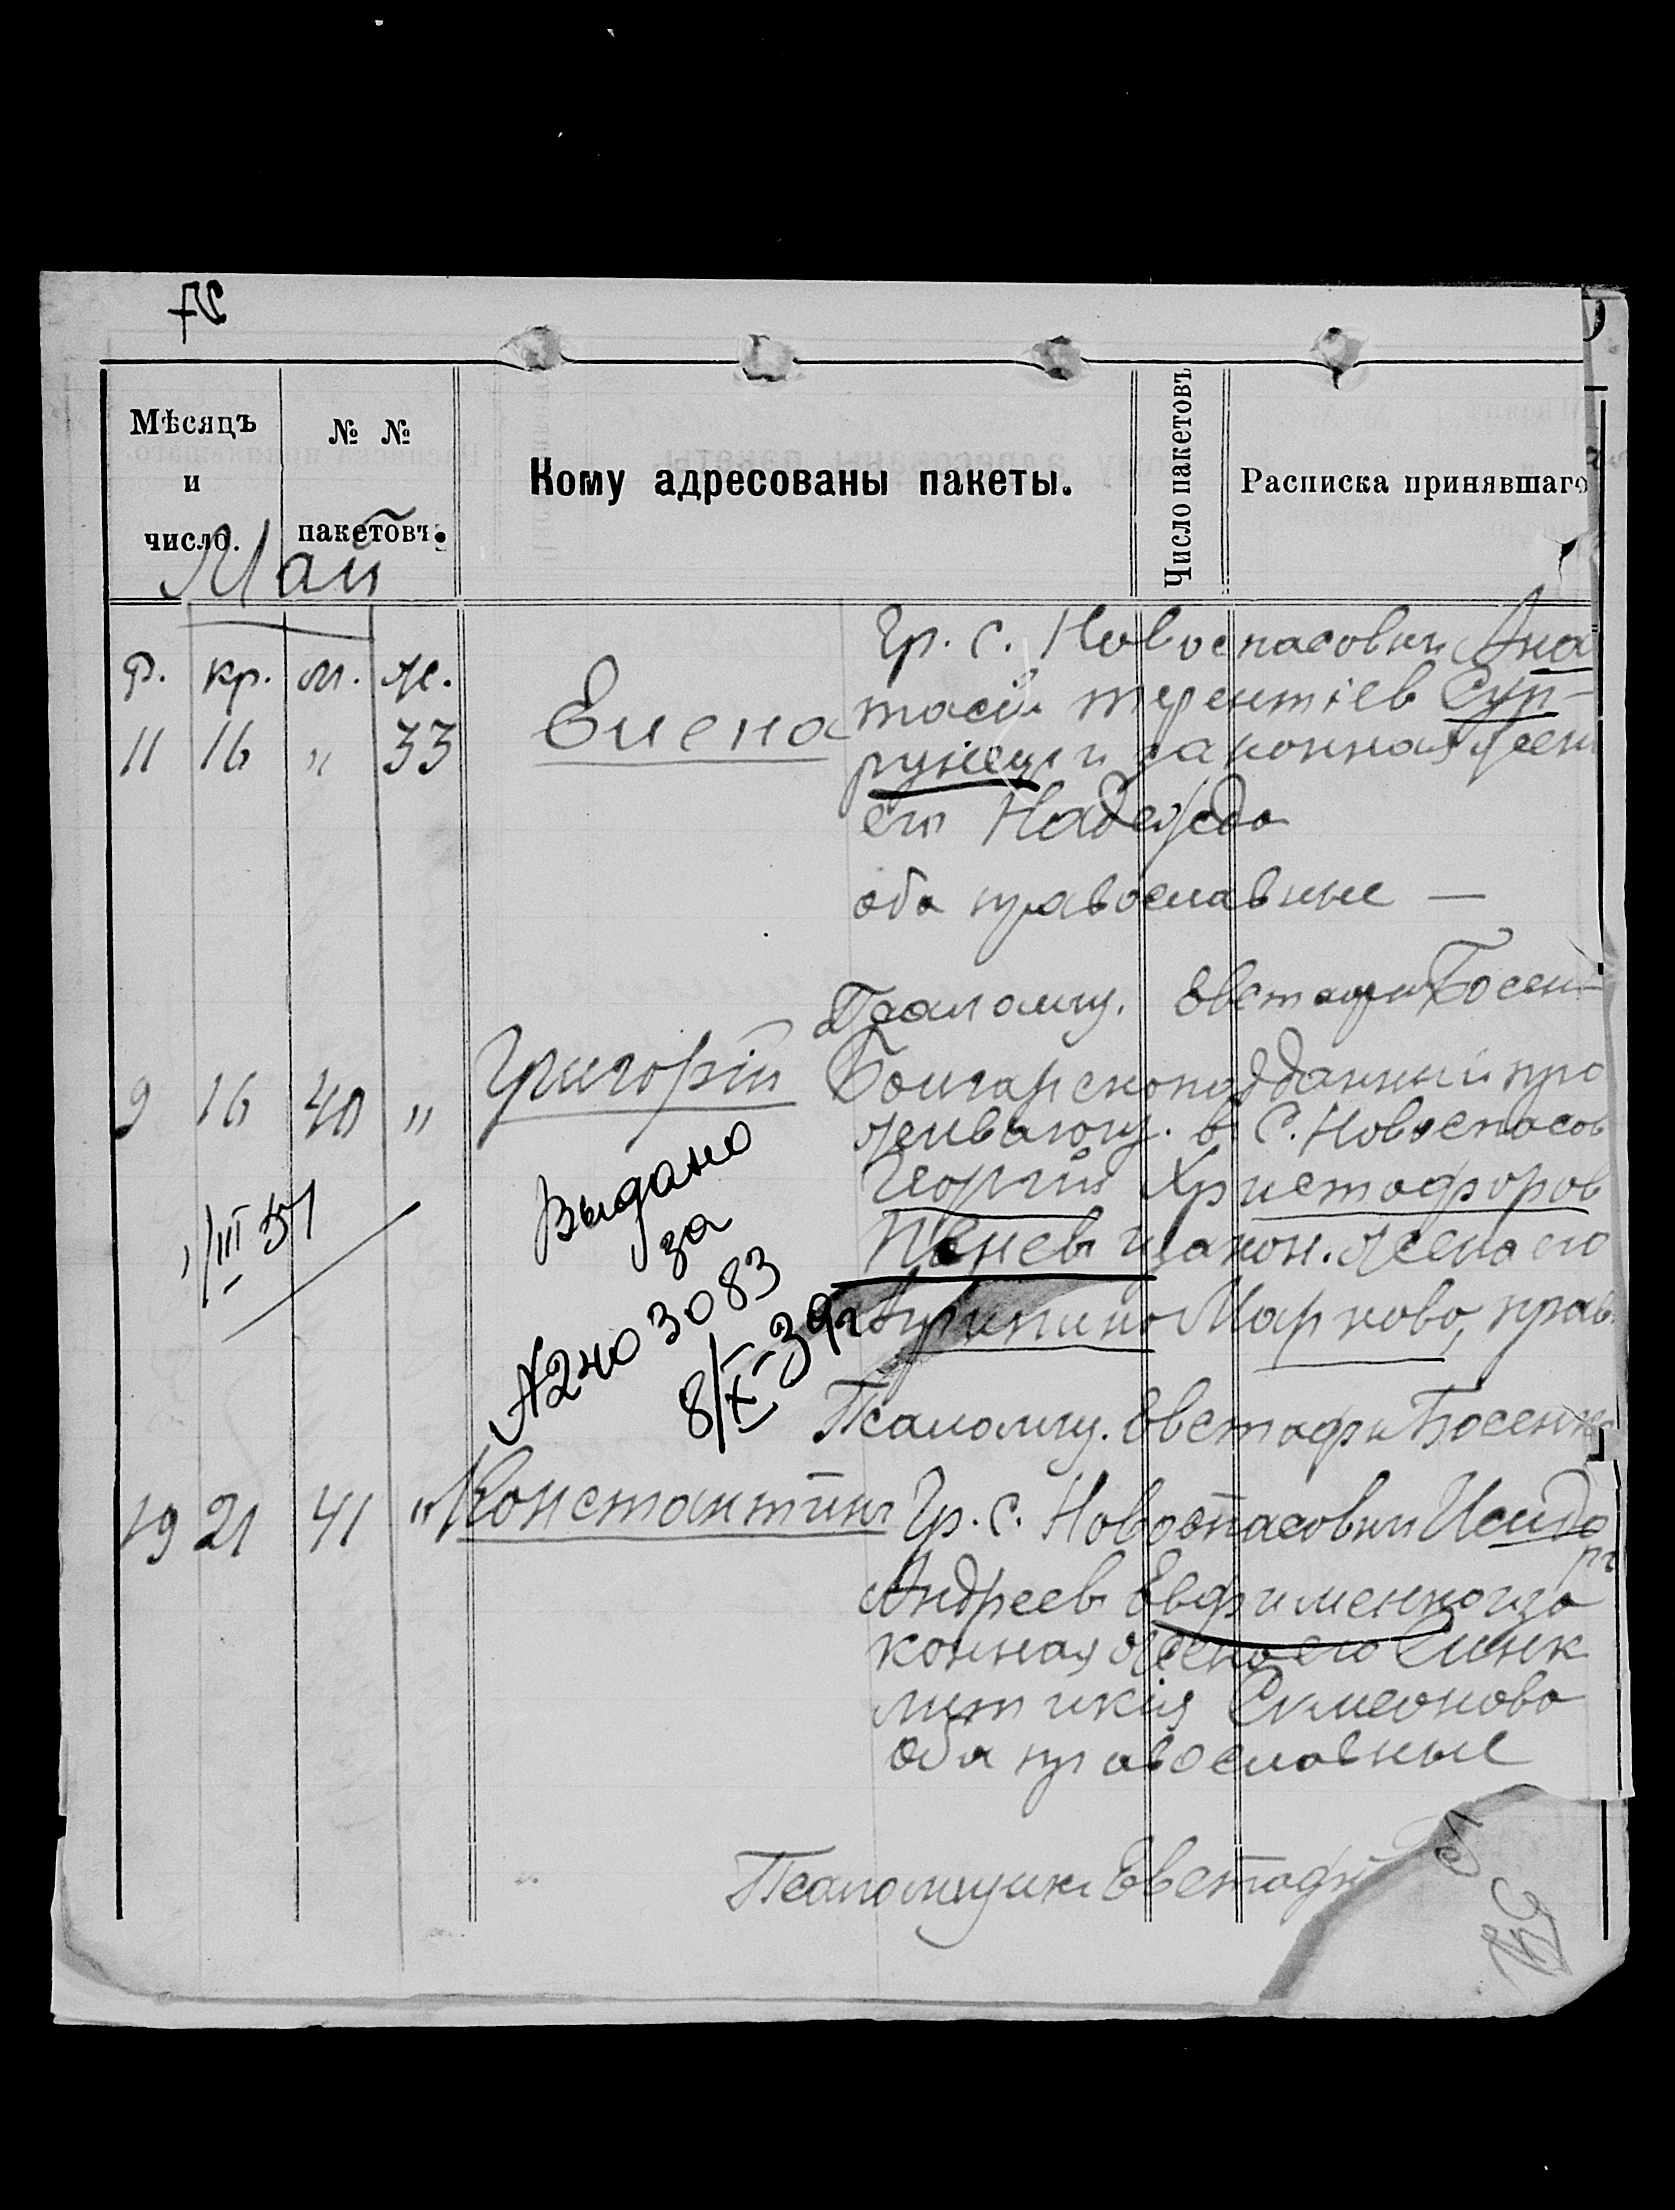 27
Мѣсяцъ
и
число.
№ №
пакетовъ.
Кому адресованы пакеты.
Число пакетовъ
Расписка принявшаго
Май
Р. кр. м. ж.
11 16 " 33
Елена
Гр. с. Новоспасовки Ана
тасій терентіев Суп-
рунец и законная жен
его Надежда
оба православные —
Псаломщ. Евстафи Босен-
9 16 40 "
Григорій
Болгарскоподданный про
живающ. в с. Новоспасов
Георгій Христофоров
Пенев и закон. жена его
Маркова, прав.
Выдано
за
3083
8/IX-39г
1/III 51
Псаломщ. Евстафи Босенк
19 21 41 "
Константин
Гр. с. Новоспасовки Исидо
ръ
Андреев Евфименко и за
конная жена его Синк
литикія Симеонова
оба православные
Псаломщик Евстафи